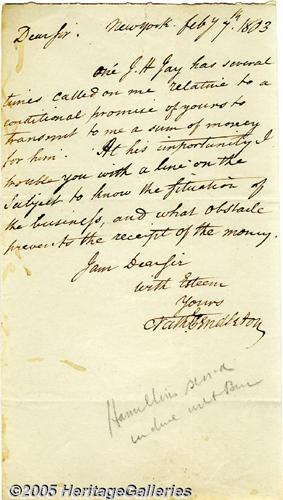 Dear Sir. New York. Feby 7th 1803
One J. H. Jay has several
times called on me relative to a
conditional promise of yours to
transmit to me a sum of money
for him. At his importunity I
trouble you with a line on the
subject to know the situation of
the business, and what obstacle
prevents the receipt of the money.
I am Dear Sir
with Esteem
Yours
Nath Pendleton
Hamilton's second
in duel with Burr
©2005 HeritageGalleries